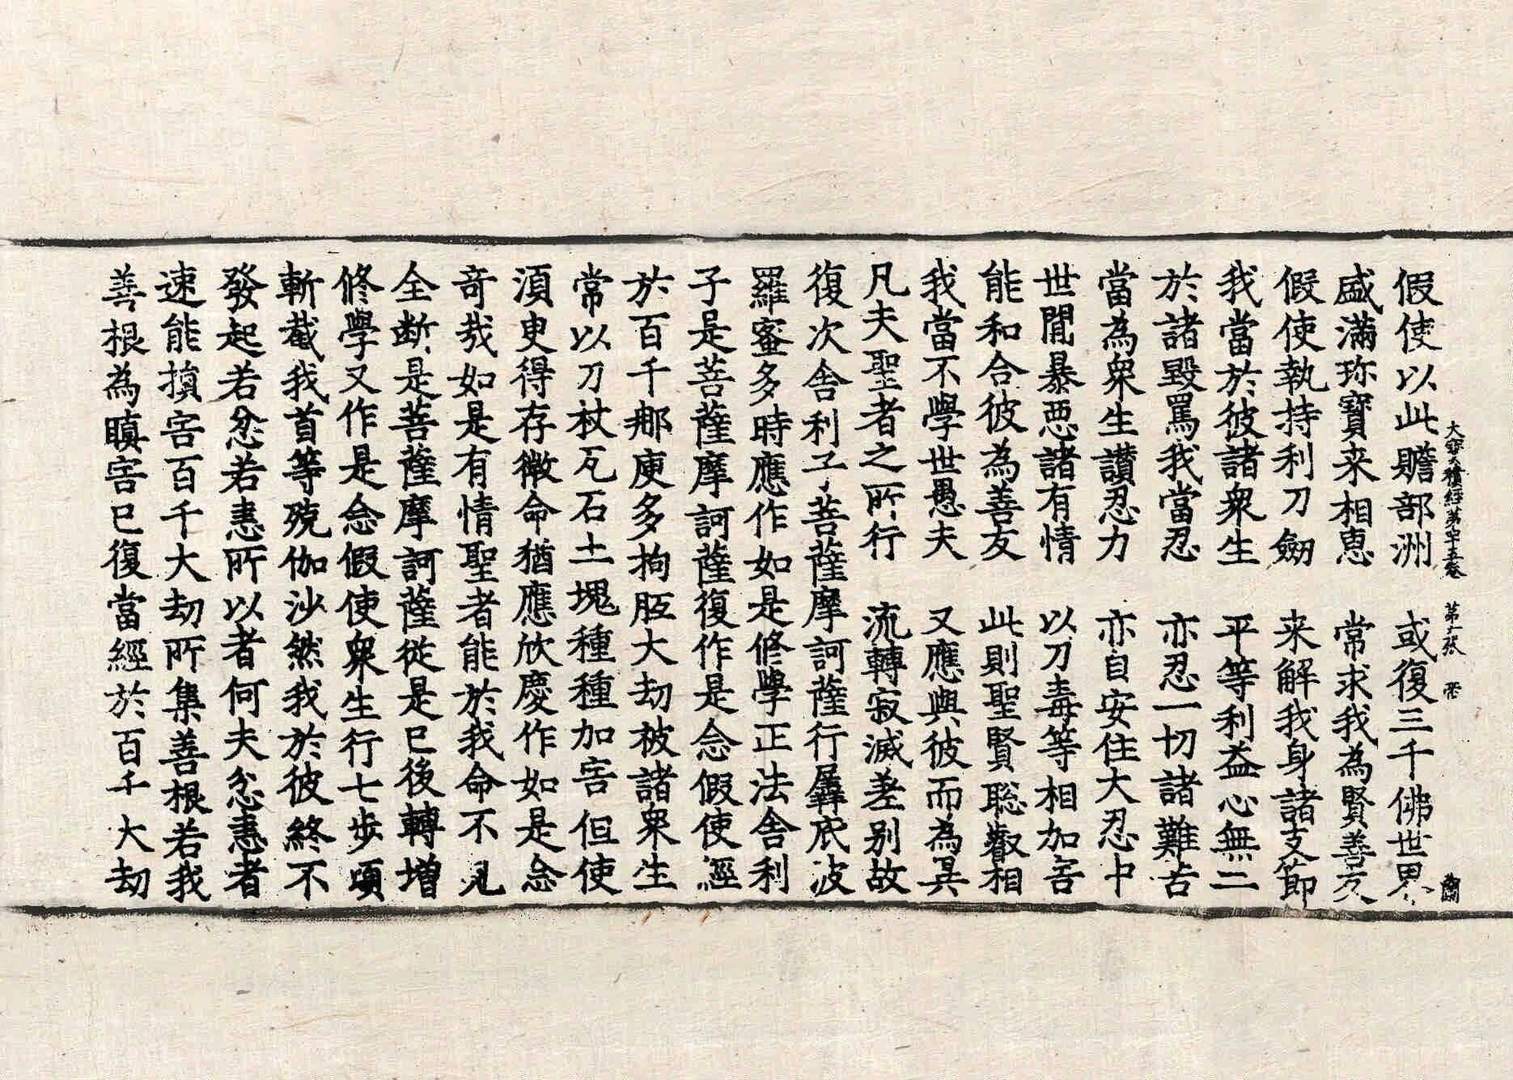 大寶積經第四十五卷 第二張 帝
假使以此贍部洲 或復三千佛世界
盛滿珎寶来相恵 常求我為賢善友
假使執持利刀劒 来解我身諸支節
我當於彼諸衆生 平等利益心無二
於諸毀罵我當忍 亦忍一切諸難苦
當為衆生讃忍力 亦自安住大忍中
世閒暴惡諸有情 以刀毒等相加害
能和合彼為善友 此則聖賢聡叡相
我當不學世愚夫 又應與彼而為異
凡夫聖者之所行 流轉寂滅差别故
復次舎利子菩薩摩訶薩行羼底波
羅蜜多時應作如是修學正法舎利
子是菩薩摩訶薩復作是念假使經
於百千那庾多拘胝大劫被諸衆生
常以刀杖瓦石土塊種種加害但使
須臾得存微命猶應欣慶作如是念
奇哉如是有情聖者能於我命不見
全断是菩薩摩訶薩從是已後轉增
修學又作是念假使衆生行七步頃
斬截我首等殑伽沙然我於彼終不
發起若忿若恚所以者何夫忿恚者
速能損害百千大劫所集善根若我
善根為瞋害已復當經於百千大劫